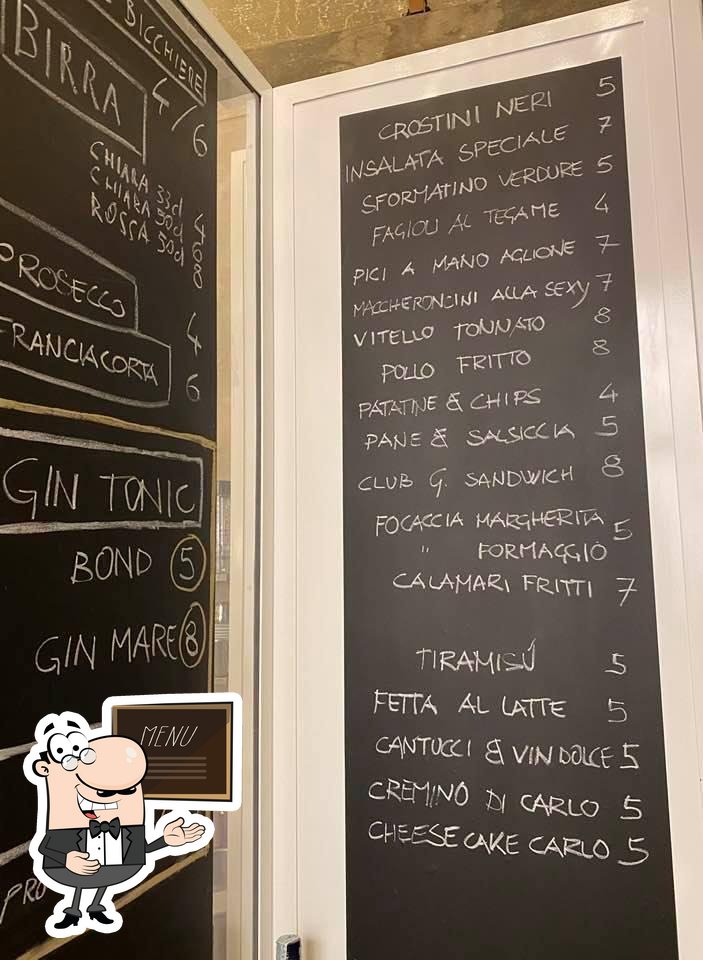 BICCHIERE
4/6
BIRRA
CHIARA 33cl 4
CHIARA 50cl 6
ROSSA 50cl 8
PROSECCO 4
FRANCIACORTA 6
GIN TONIC
BOND 5
GIN MARE 8
PRO
MENU
CROSTINI NERI 5
INSALATA SPECIALE 7
SFORMATINO VERDURE 5
FAGIOLI AL TEGAME 4
PICI A MANO AGLIONE 7
MACCHERONCINI ALLA SEXY 7
VITELLO TONNATO 8
POLLO FRITTO 8
PATATINE & CHIPS 4
PANE & SALSICCIA 5
CLUB G. SANDWICH 8
FOCACCIA MARGHERITA 5
" FORMAGGIO
CALAMARI FRITTI 7
TIRAMISÚ 5
FETTA AL LATTE 5
CANTUCCI & VIN DOLCE 5
CREMINO DI CARLO 5
CHEESECAKE CARLO 5